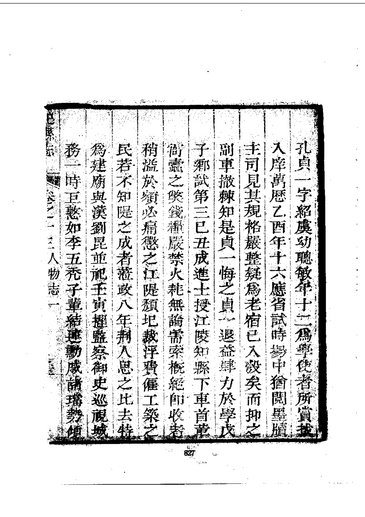 孔貞一字紹虞幼聰敏年十二為學使者所賞拔
入庠萬曆乙酉年十六應省試時場中猶閱墨牘
主司見其規格嚴整疑為老宿已入彀矣而抑之
副車撤棘知是貞一悔之貞一退益肆力於學戊
子鄉試第三己丑成進士授江陵知縣下車首革
尚蠹之弊錢糧嚴禁火耗無論需索概經卽收者
稍溢於額必痛懲之江隄頹圮裁浮費僱工築之
民若不知隄之成者蒞政八年荆人思之比去特
為建廟與漢劉昆並祀壬寅擢監察御史巡視城
務一時巨憝如李五禿子輩結連勳戚諸璫勢傾
卷之十三人物志一
827